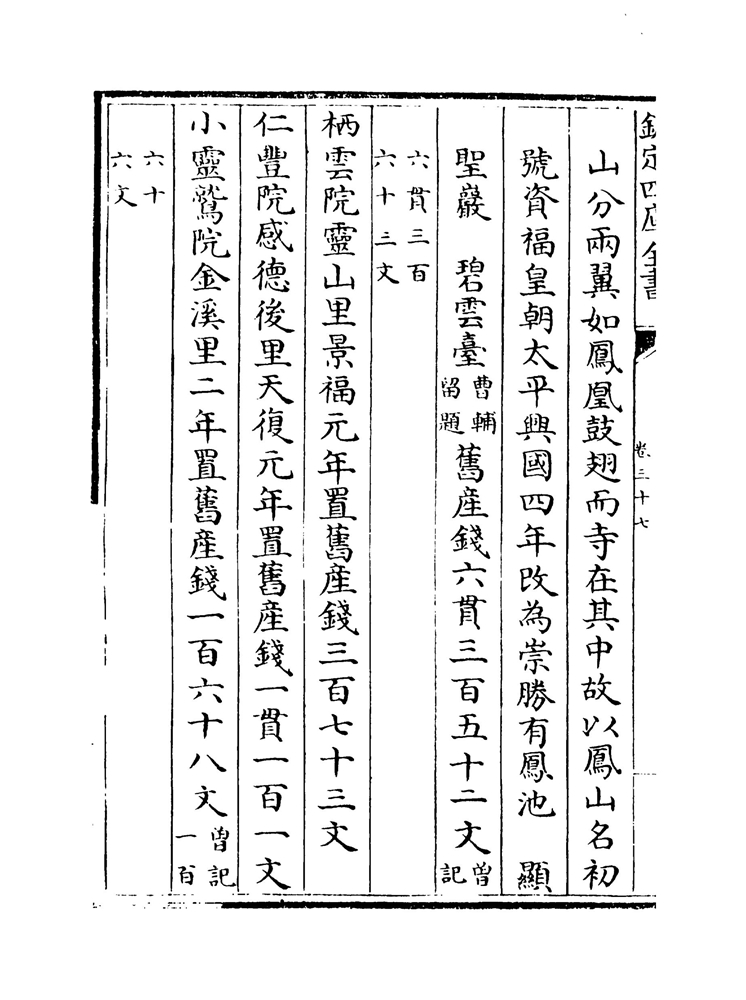 欽定四庫全書
卷三十七
山分兩翼如鳳凰鼓翅而寺在其中故以鳳山名初
號資福皇朝太平興國四年改為崇勝有鳳池　顯
聖巖　碧雲臺曹輔留題舊產錢六貫三百五十二文曾記
六貫三百六十三文
栖雲院靈山里景福元年置舊產錢三百七十三文
仁豐院感德後里天復元年置舊產錢一貫一百一文
小靈鷲院金溪里二年置舊產錢一百六十八文曾記一百
六十六文